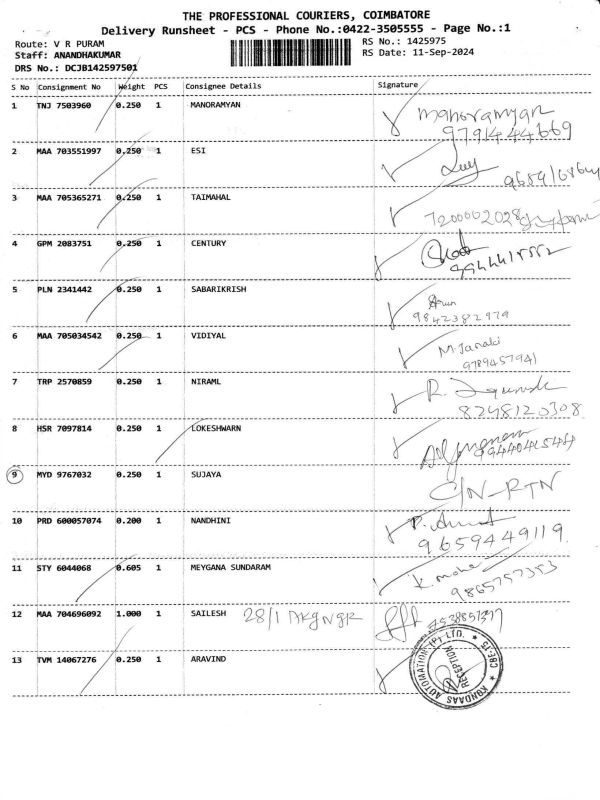 THE PROFESSIONAL COURIERS, COIMBATORE
Delivery Runsheet - PCS - Phone No.:0422-3505555 - Page No.:1
Route: V R PURAM
Staff: ANANDHAKUMAR
DRS No.: DCJB142597501
RS No.: 1425975
RS Date: 11-Sep-2024
S No Consignment No Weight PCS Consignee Details Signature
1 TNJ 7503960 0.250 1 MANORAMYAN manoramyan
9791444669
2 MAA 703551997 0.250 1 ESI
3 MAA 705365271 0.250 1 TAIMAHAL 7200002028
4 GPM 2083751 0.250 1 CENTURY
5 PLN 2341442 0.250 1 SABARIKRISH Arun
9842382979
6 MAA 705034542 0.250 1 VIDIYAL M. Janaki
9789457941
7 TRP 2570859 0.250 1 NIRAML R.
8248120308
8 HSR 7097814 0.250 1 LOKESHWARN
9944041544
9 MYD 9767032 0.250 1 SUJAYA C/N-RTN
10 PRD 600057074 0.200 1 NANDHINI P.
9659449119
11 STY 6044068 0.605 1 MEYGANA SUNDARAM K. mohan
9865757353
12 MAA 704696092 1.000 1 SAILESH 28/1 NKG NGR
13 TVM 14067276 0.250 1 ARAVIND
KONDAAS AUTOMATION (P) LTD. * CBE-15 *
RECEPTION